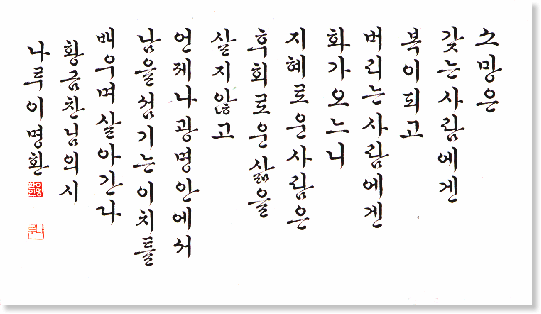 소망은
갖는 사람에겐
복이 되고
버리는 사람에겐
화가 오느니
지혜로운 사람은
후회로운 삶을
살지 않고
언제나 광명 안에서
남을 섬기는 이치를
배우며 살아간다
황금찬님의 시
나루 이명환